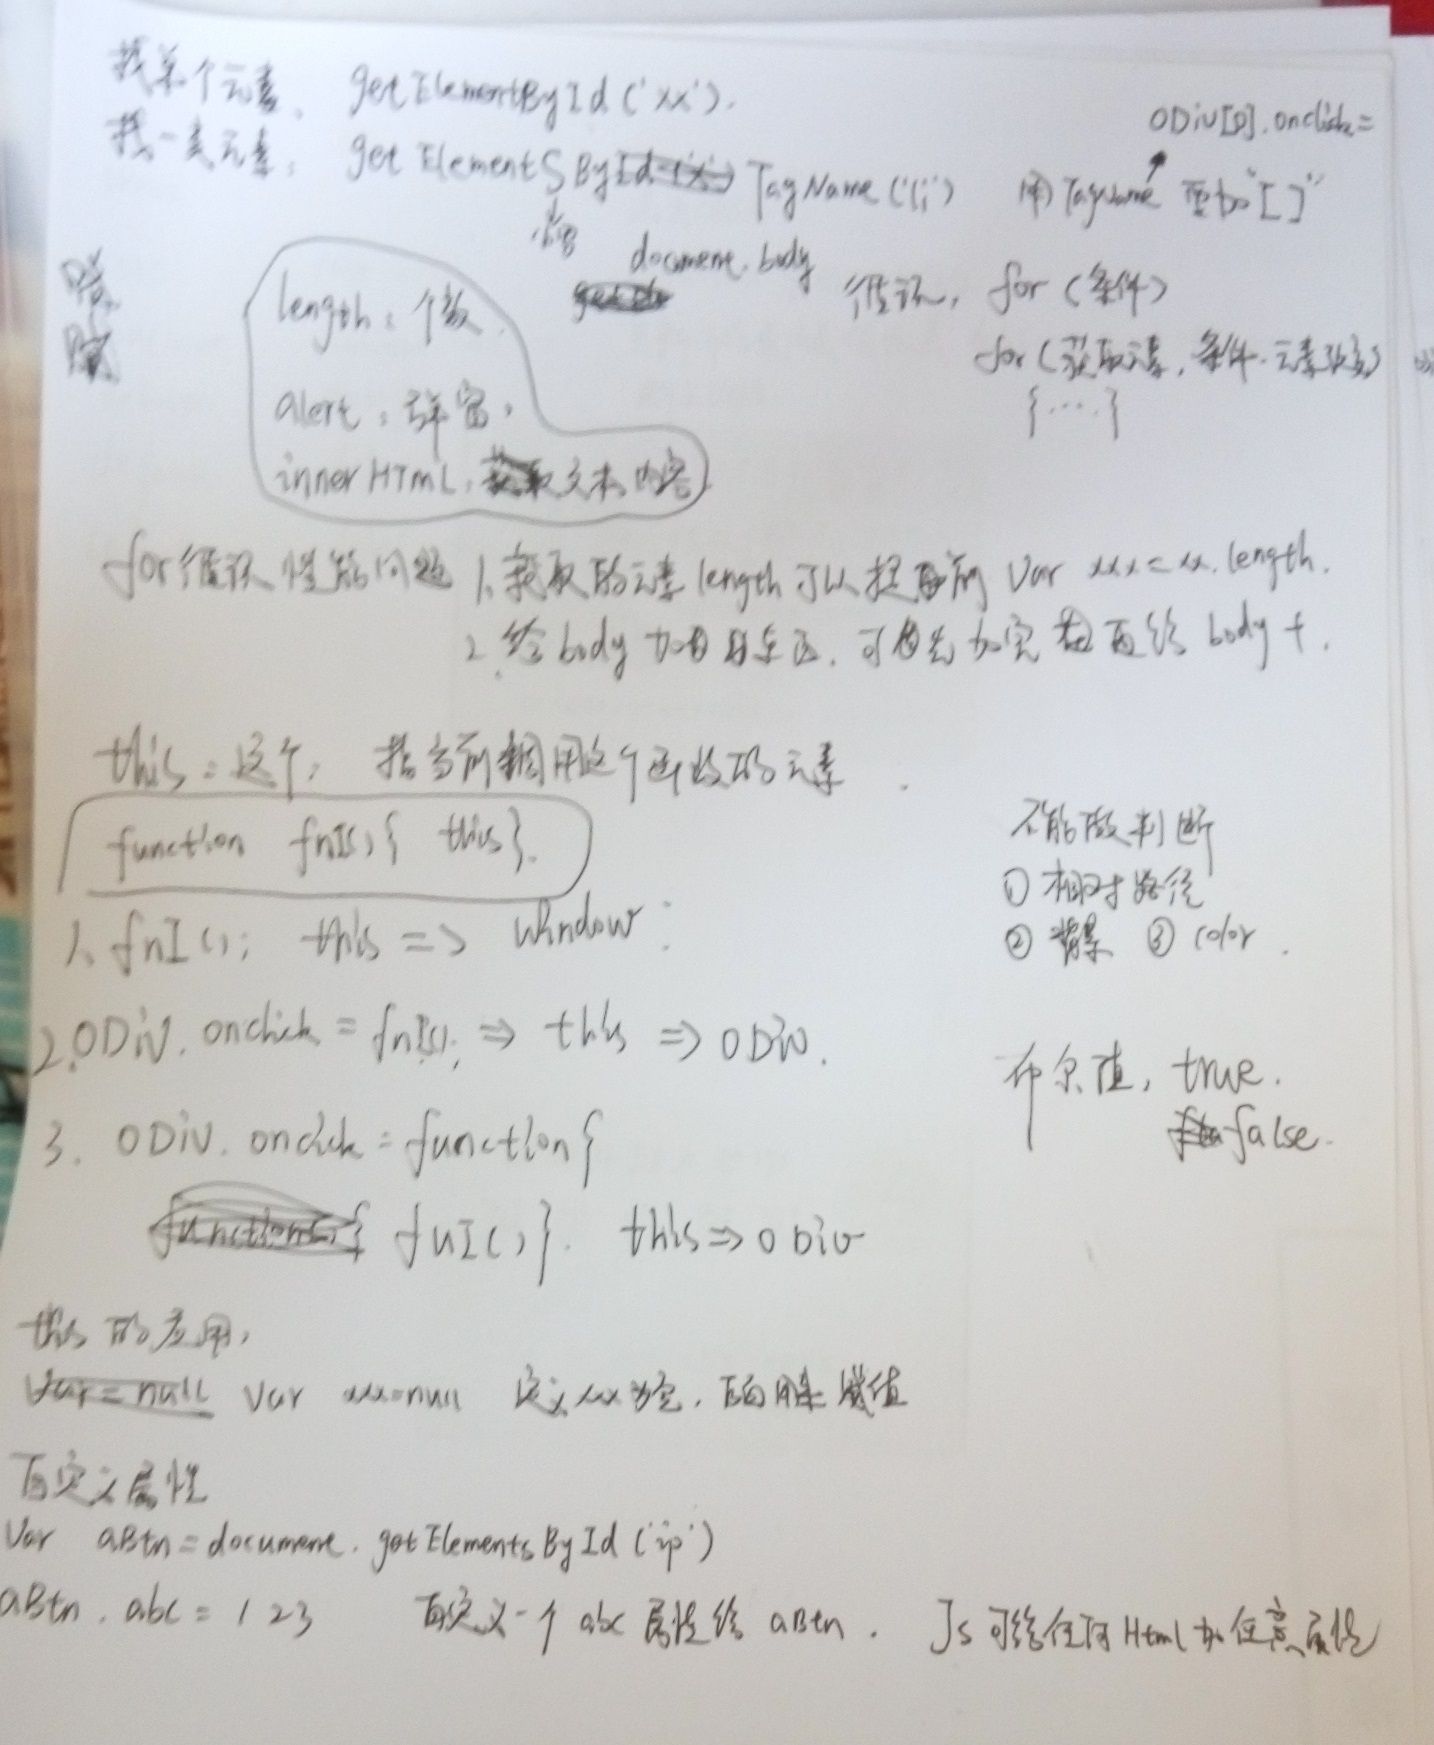 找某个元素、getElementById('xx').
找一类元素, getElementSByTagName('li')
oDiv[0].onclick=
用TagName 要加"[]"
document.body
length:个数
循环, for (条件)
for (获取元素,条件.元素
{....}
alert:弹窗,
innerHTML,获取文本内容
for循环性能问题 1、获取的元素length可以提取前 Var xxx=xx.length.
2.给body加 可首先加完 再给body+.
this:这个, 指当前调用这个函数的元素.
function fn1(){ this}.
1、fn1(); this => window:
2.oDiv.onclick = fn1(); => this => oDiv.
3. oDiv.onclick = function{
fn1()}. this => oDiv
不能做判断
①相对路径
②背景 ③color.
布尔值, true.
false.
this的应用,
Var=null Var xxx=null 定义xx为空, 用来赋值
自定义属性
Var aBtn=document.getElementsById('ip')
aBtn.abc=123 自定义一个abc属性给aBtn. Js可给任何Html加任意属性